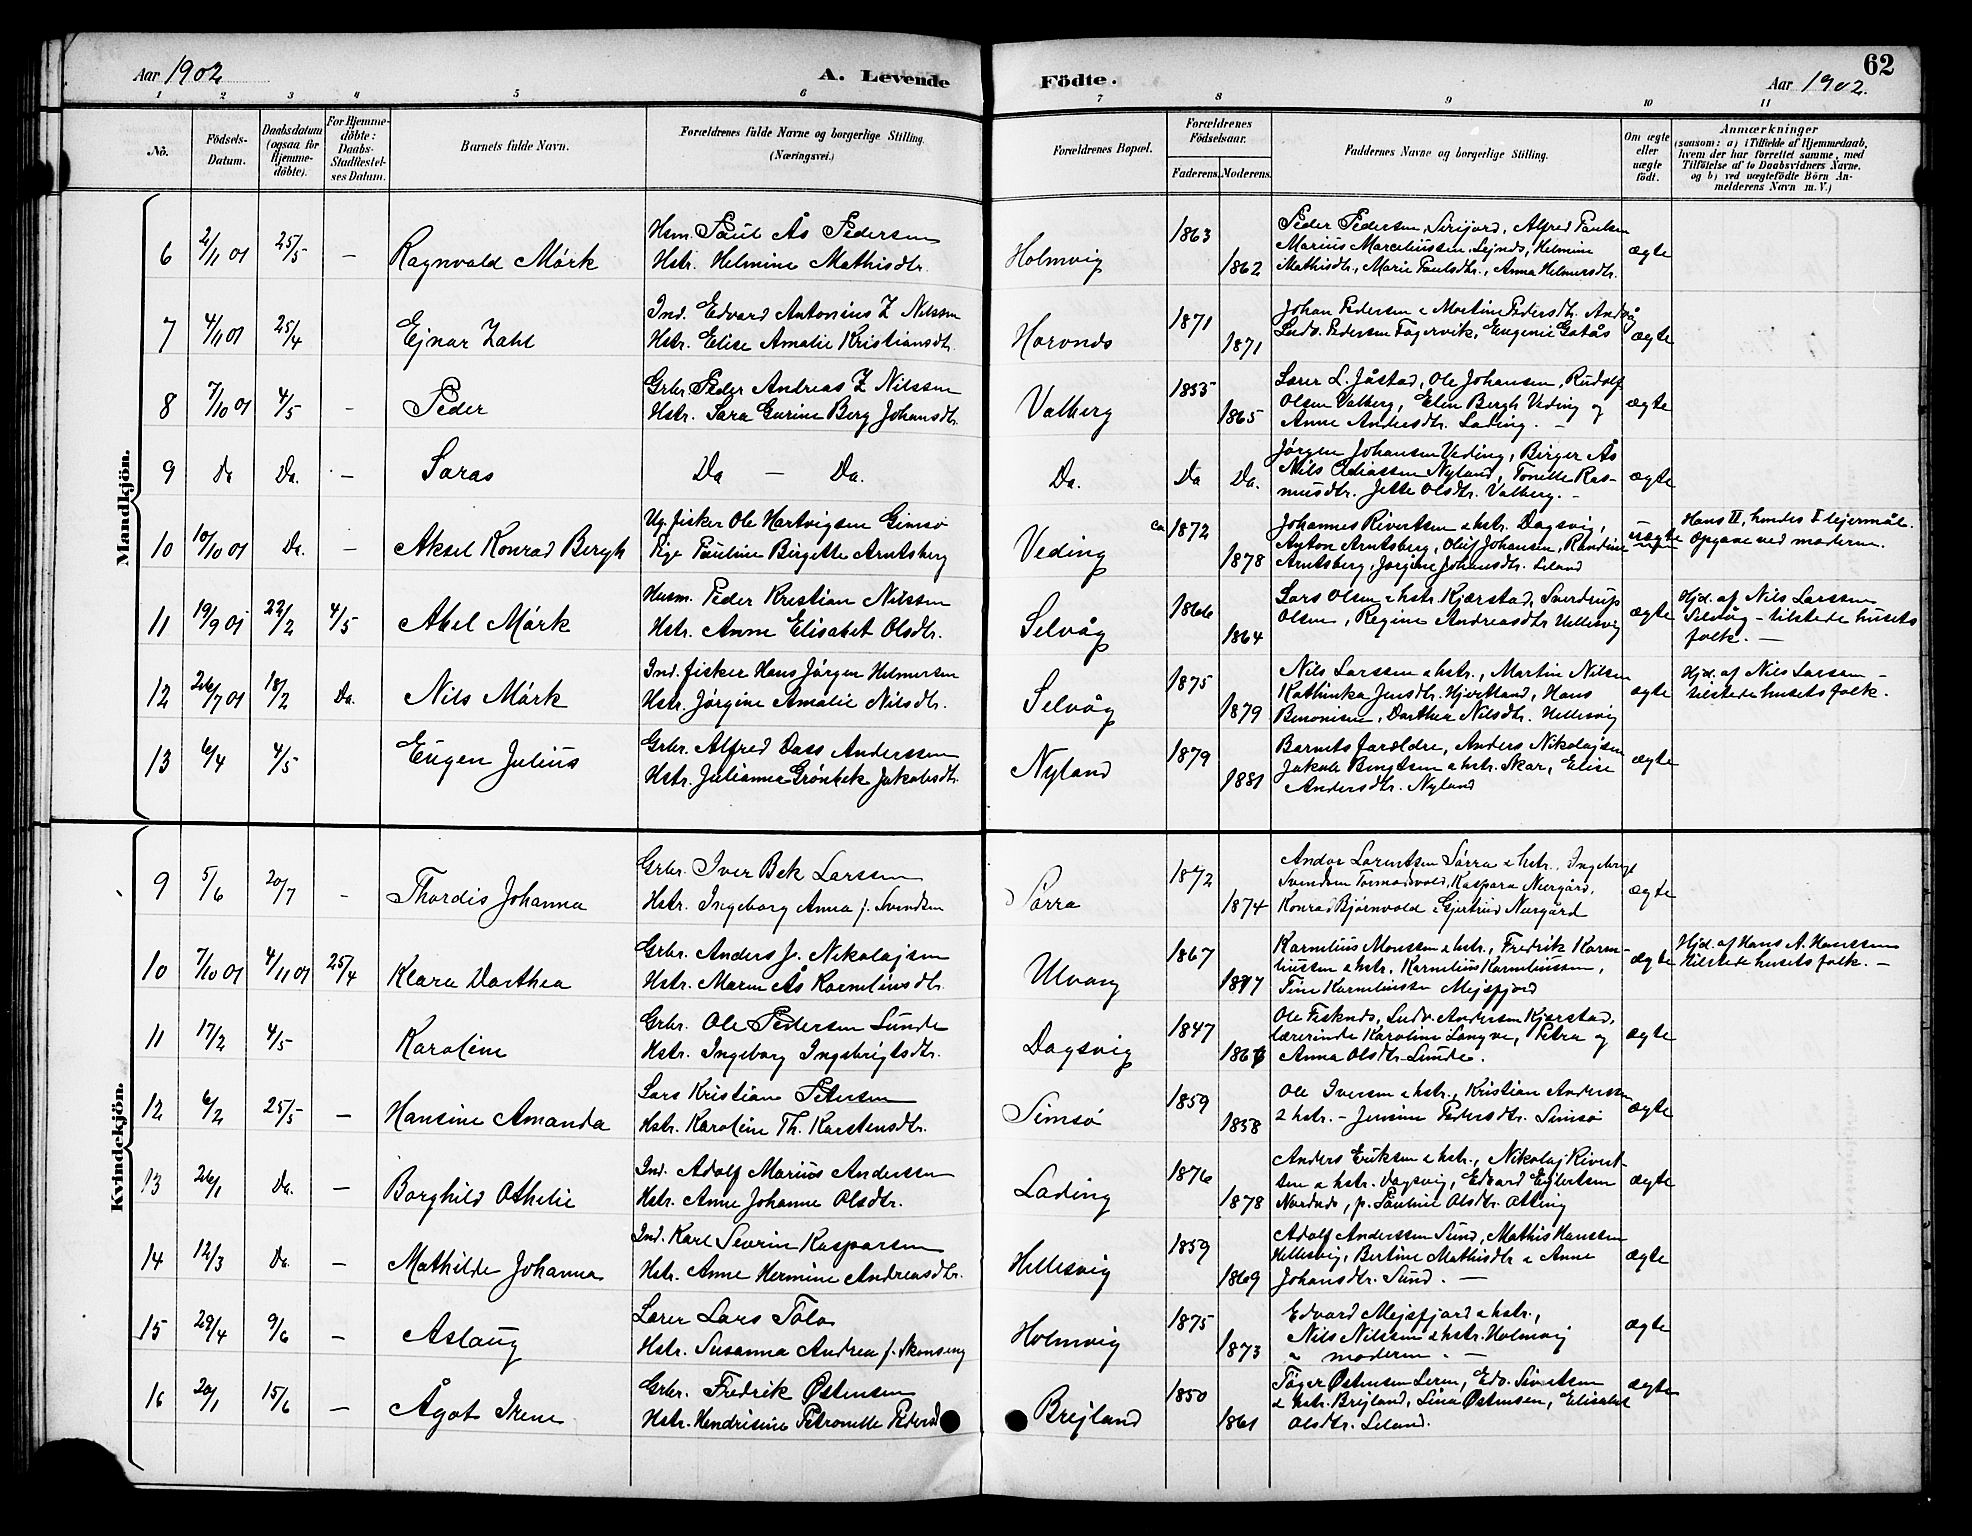 Aar 1902 A. Levende Födte. Aar 1902. 62
1 2 3 4 5 6 7 8 9 10 11
No. Födsels-Datum. Daabsdatum (ogsaa for Hjemmedöbte). For Hjemmedöbte: Daabs-Stadfæstelses Datum. Barnets fulde Navn. Forældrenes fulde Navne og borgerlige Stilling. (Næringsvei.) Forældrenes Bopæl. Forældrenes Födselsaar. Faderens. Moderens. Faddernes Navne og borgerlige Stilling. Om ægte eller uægte födt. Anmærkninger (saasom: a) i Tilfælde af Hjemmedaab, hvem der har forrettet samme, med Tilföielse af to Daabsvidners Navne, og b) ved uægtefödte Börn Anmelderens Navn m. V.)
Mandkjön.
6 2/11 01 25/5 — Ragnvald Mörk
Hsm. Paul Ås Pedersen
Hstr. Helmine Mathisdtr.
Holmvig 1863 1862
Peder Pedersen, Seijord, Alfred Paulsen
Marius Marceliussen, Lejnds, Helmine
Mathisdtr., Marie Paulsdtr., Anna Helmersdtr.
ægte
7 4/11 01 25/4 Ejnar Zahl
Ind. Edvard Antonius Z Nilssen
Hstr. Elise Amalie Kristiansdtr.
Horonds 1871 1871
Johan Pedersen & Martine Pedersdtr. Andvåg
Ludv. Pedersen Fagervik, Eugenie Gatås
ægte
8 7/10 01 4/5 - Peder
Grbr. Peder Andreas Z Nilssen
Hstr. Sara Gurine Berg Johansdtr.
Valberg 1855 1865
Lærer L. Jåstad, Ole Johansen, Rudolf
Olsen Valberg, Elen Bergh Veding og
Anne Andersdtr. Lading. -
ægte
9 Da Da. — Saras
Da — Da.
Da. Da Da.
Jørgen Johansen Veding, Birger Ås
Nils Eliassen Nyland, Tonette Ras-
musdtr. Jette Olsdtr. Valberg. -
ægte
10 10/10 01 Da. - Aksel Konrad Bergh
Ug. fisker Ole Hartvigsen Gimsö
Pige Pauline Birgitte Arntsberg
Veding ca 1872 1878
Johannes Rivertsen & hstr. Dagsvig,
Anton Arntsberg, Oluf Johansen, Randine
Arntsberg, Jørgine Johansdtr. Leland
uægte
Hans II, hendes I lejermål.
Opgave ved moderen.
11 19/9 01 22/2 4/5 Abel Mörk
Husm. Peder Kristian Nilssen
Hstr. Anne Elisabet Olsdtr.
Selvåg 1866 1864
Lars Olsen & hstr. Kjærstad, Sverdrup
Olsen, Regine Andreasdtr Hellesvig
ægte
Hjd. af Nils Larssen
Selvåg - tilstede husets
folk. —
12 26/7 01 18/2 Da. Nils Mörk
Ind. fisker Hans Jørgen Helmersen
Hstr. Jørgine Amalie Nilsdtr.
Selvåg 1875 1879
Nils Larssen & hstr., Martin Nilsen
Kathinka Jensdtr. Hjertland, Hans
Benonisen, Dorthea Nilsdtr. Hellesvig
ægte
Hjd. af Nils Larsen -
tilstede husets folk -
13 6/4 4/5 Eugen Julius
Grbr. Alfred Dass Anderssen
Hstr. Julianna Grönbek Jakobsdtr.
Nyland 1879 1881
Barnets forældre, Anders Nikolajsen
Jakob Bengtsen & hstr. Skar, Elise
Andersdtr. Nyland
ægte
Kvindekjön.
9 5/6 20/7 - Thordis Johanna
Grbr. Iver Bek Larssen
Hstr. Ingeborg Anna f. Svendsen
Sörra 1872 1874
Andor Lorentsen Sörra & hstr., Ingeborg
Svendsen Tormodsvold, Kaspara Nergård,
Konrad Bjørnvold & Gjertrud Nergård
ægte
10 7/10 01 4/11 01 25/4 Klara Dorthea
Grbr. Anders J. Nikolajsen
Hstr. Maren Ås Kornelinsdtr.
Ulvang 1867
Kornelius Monssen & hstr., Fredrik Korne-
liussen & hstr., Kornelius Korneliussen,
Tine Korneliussen Mejsfjord
ægte
Hjd. af Hans A. Hanssen
tilstede husets folk. -
11 17/2 4/5 Karoline
Grbr. Ole Pedersen Lunde
Hstr. Ingeborg Ingebrigtsdtr.
Dagsvig 1847
Ole Fisknds, Ludv. Andersen Kjærstad,
lærerinde Karoline Langve, Petra og
Anna Olsdtr. Lunde.
ægte
12 6/2 25/5 — Hansine Amanda
Lars Kristian Petersen
Hstr. Karoline Th. Karstensdtr.
Simsö 1859 1858
Ole Iversen & hstr., Kristian Anderssen
& hstr. - Jensine Pedersdtr. Simsö
ægte
13 26/1 Da. — Borghild Othelie
Ind. Adolf Marius Anderssen
Hstr. Anne Johanne Olsdtr.
Lading 1876 1878
Anders Eriksen & hstr., Nikolaj Rivert-
sen & hstr. Dagsvig, Edvard Eglertsen
Nordnds, p. Pauline Olsdtr. Otting
ægte
14 12/3 Da. — Mathilde Johanna
Ind. Karl Severin Kasparsen
Hstr. Anne Hermine Andreasdtr.
Hellesvig 1859 1869
Adolf Anderssen Sund, Mathis Hanssen
Hellesvig, Bertine Mathisdtr & Anne
Johansdtr. Sund. —
ægte
15 29/4 9/6 — Aslaug
Lærer Lars Tolo
Hstr. Susanna Andrea f. Skonseng
Holmvig 1875 1873
Edvard Mejsfjord & hstr.,
Nils Nilssen & hstr. Holmvig
& moderen. —
ægte
16 20/1 15/6 — Ågot Irene
Grbr. Fredrik Østensen
Hstr. Hendrisine Petronelle Pedersd
Brejland 1850 1861
Tøger Østensen Leren, Edv. Sivertsen
& hstr. Brejland, Lina Østensen, Elisabet
Olsdtr. Leland.
ægte